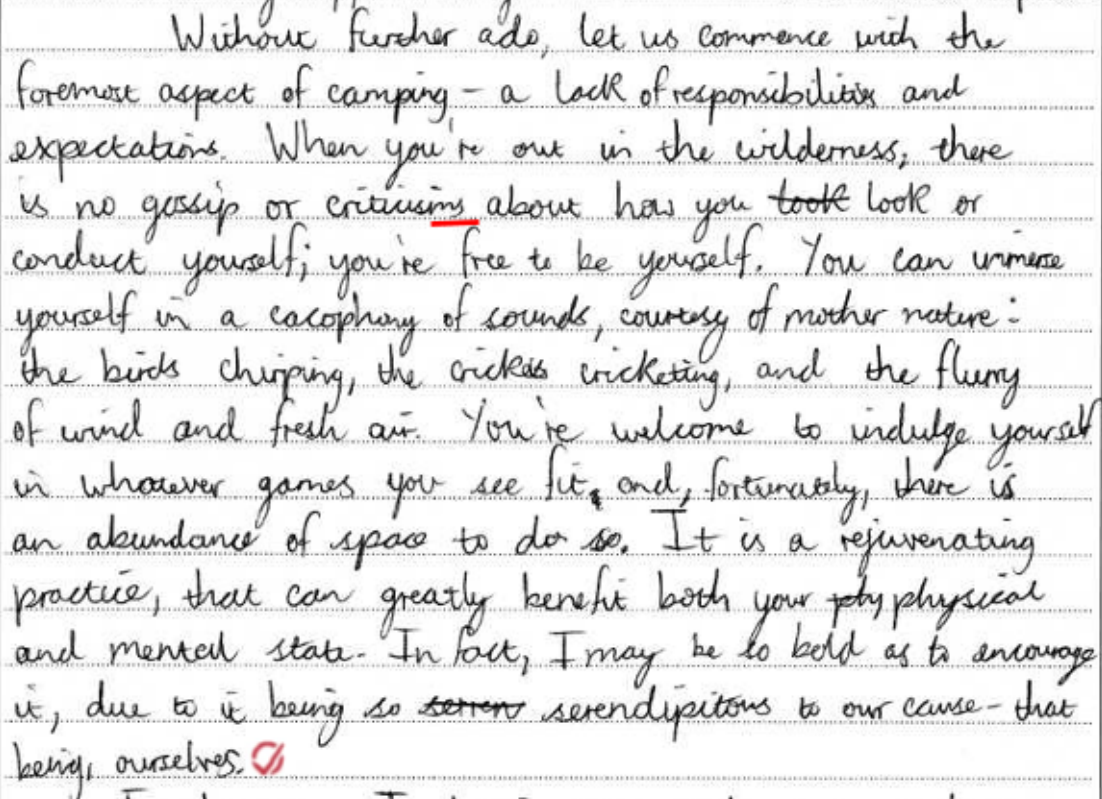 Without further ado, let us commence with the
foremost aspect of camping - a lack of responsibilities and
expectations. When you're out in the wilderness, there
is no gossip or criticisms about how you took look or
conduct yourself; you're free to be yourself. You can immerse
yourself in a cacophony of sounds, courtesy of mother nature:
the birds chirping, the crickets cricketing, and the flurry
of wind and fresh air. You're welcome to indulge yourself
in whatever games you see fit, and, fortunately, there is
an abundance of space to do so. It is a rejuvenating
practice, that can greatly benefit both your phy physical
and mental state. In fact, I may be so bold as to encourage
it, due to it being so serendipitous to our cause - that
being, ourselves.